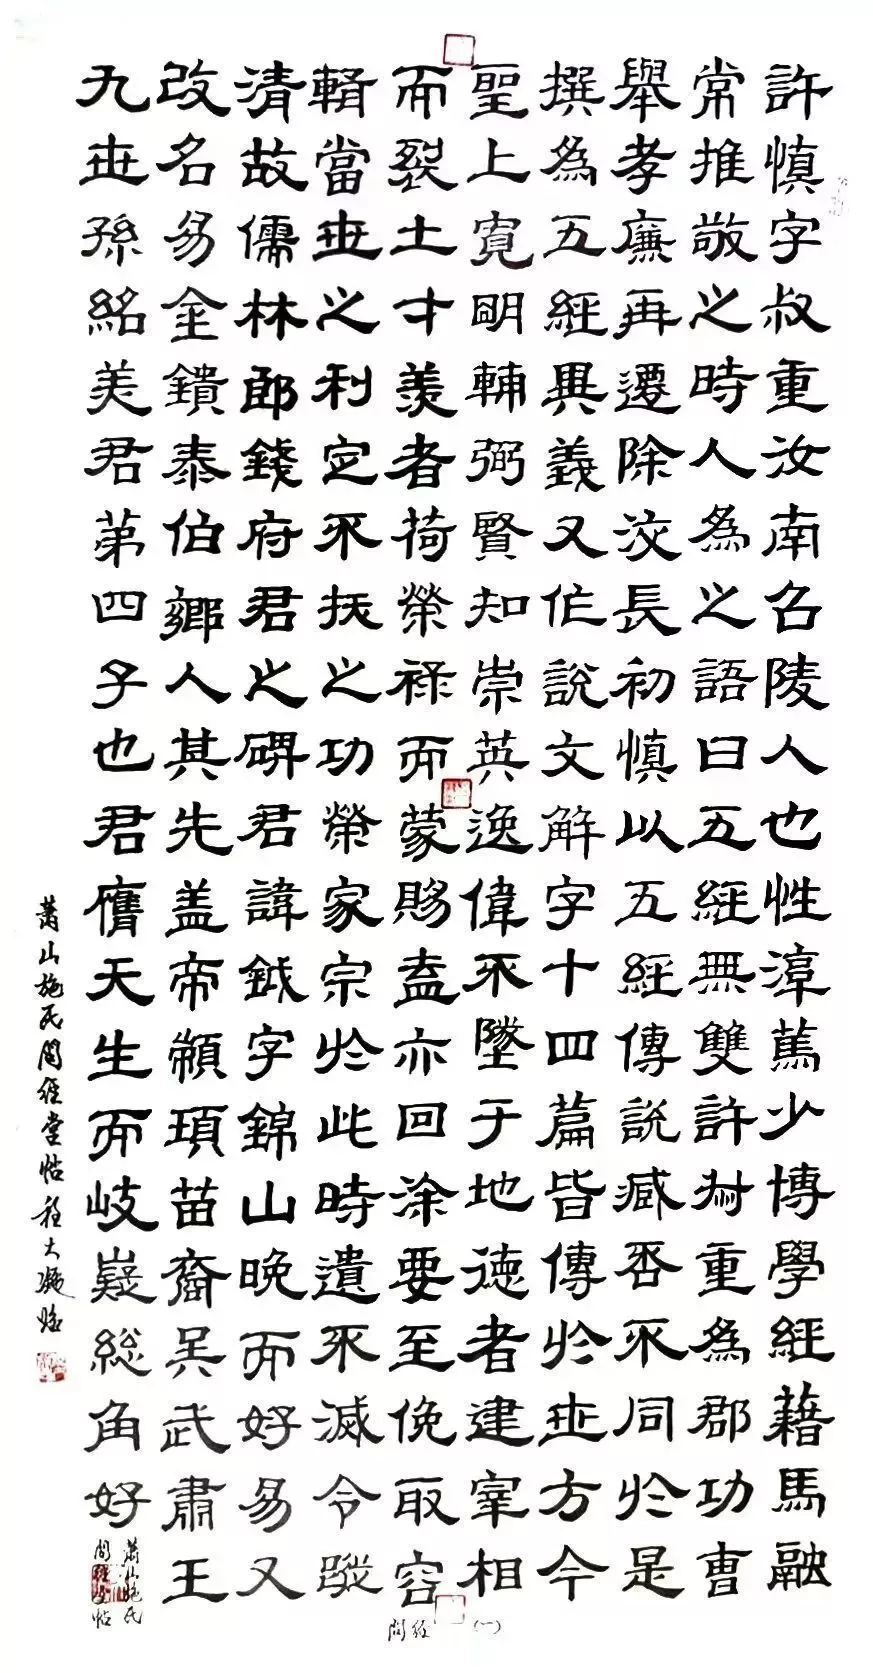 許慎字叔重汝南召陵人也性淳篤少博學經藉馬融
常推敬之時人為之語曰五經無雙許叔重為郡功曹
舉孝廉再遷除洨長初慎以五經傳說臧否不同於是
撰為五經異義又作說文解字十四篇皆傳於世方今
聖上寬明輔弼賢知崇英逸偉不墜于地德者建宰相
而裂土才羨者荷榮祿而蒙賜盍亦回涂要至俛取容
輯當世之利定不拔之功榮家宗於此時遺不滅令蹤
清故儒林郎錢府君之碑君諱鉞字錦山晚而好易又
改名易金鐀泰伯鄉人其先盖帝顓頊苗裔吳武肅王
九世孫美君第四子也君膺天生而岐嶷總角好
蕭山施氏
問經堂帖
蕭山施氏問經堂帖
問經
(一)